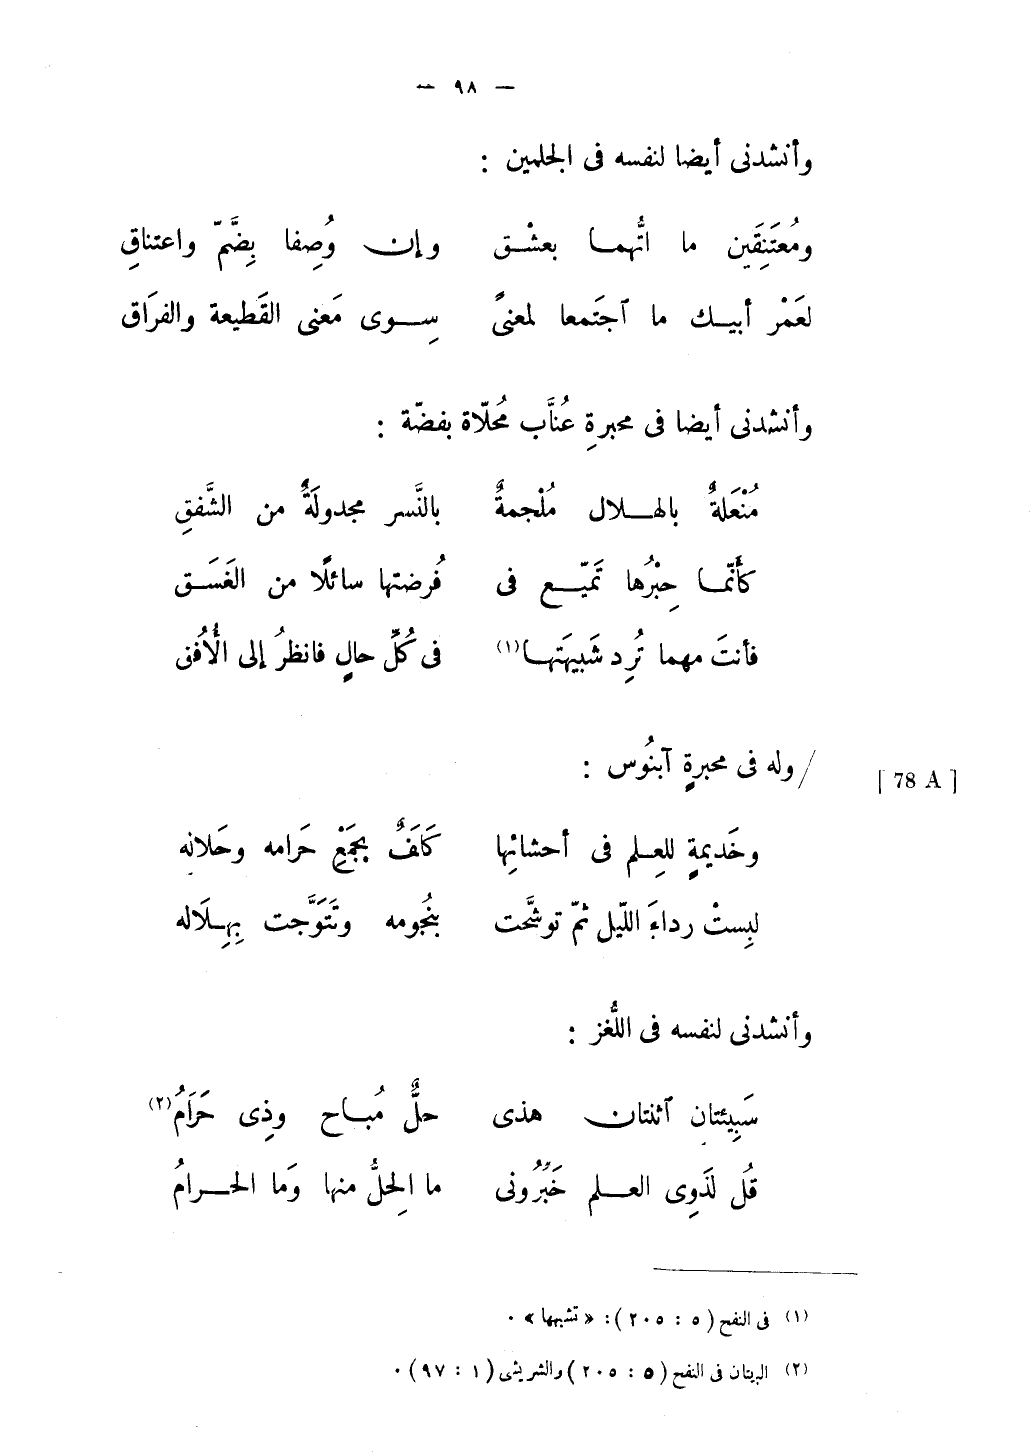 — ٩٨ —
وأنشدنى أيضا لنفسه فى الجلمين :
ومُعتَنِقَين ما اتُّهمـا بعشْـق وإن وُصِفا بِضَّمّ واعتناقِ
لعَمْر أبيـك ما ٱجتَمعا لمعنىً سِـوى مَعنى القَطيعة والفرَاق
وأنشدنى أيضا فى محبرةِ عُنّاَب مُحلّاة بفضّة :
مُنْعَلةٌ بالهـلال مُلْجمةٌ بالنَّسر مجدولَةٌ من الشَّفقِ
كأنّمـا حِبْرُها تَميّـع فى فُرضتها سائلًا من الغَسَـق
فأنتَ مهما تُرِد شَبيهَتهـا(١) فى كُلِّ حالٍ فانظرُ إلى الأُفق
/ وله فى محبرةٍ آبنُوس : [ 78 A ]
وخَديمةٍ للعِـلم فى أحشائِها كَلَفٌ بجَمْعِ حَرامه وحَلاله
لبِستْ رداءَ اللّيل ثمّ توشَّحت بنُجومه وتَتَوَّجت بِهِـلَاله
وأنشدنى لنفسه فى اللُّغز :
سَبِيئتان ٱثنتان هذى حلٌّ مُبـاح وذِى حَرَامُ(٢)
قُل لذَوِى العـلم خَبِّرُونى ما الِحلُّ منها وَما الحـرامُ
(١) فى النفح ( ٥ : ٢٠٥ ) : « تشبيهها » .
(٢) البيتان فى النفح ( ٥ : ٢٠٥ ) والشريشى ( ١ : ٩٧ ) .